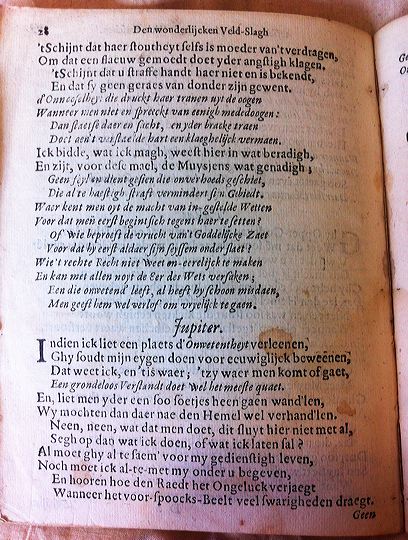 28 Den wonderlijcken Veld-Slagh
'tSchijnt dat haer stoutheyt selfs is moeder van't verdragen,
Om dat een slaeuw gemoedt doet yder angstigh klagen.
'tSchijnt dat u straffe handt haer niet en is bekendt,
En dat sy geen geraes van donder zijn gewent.
d'Onneeselheyt die druckt haer tranen uyt de oogen
Wanneer men niet en spreeckt van eenigh mededoogen:
Dan staetse daer en sucht, en yder bracke traen
Doet aen't versteelde hart een klaeghelijck vermaen.
Ick bidde, wat ick magh, weest hier in wat beradigh,
En zijt, voor dese mael, de Muysjens wat genadigh;
Geen feyl en dient gesien als onverhoeds geschiet,
Die al te haestigh straft vermindert sijn Gebiedt.
Waer kent men oyt de macht van in-gestelde Wetten
Voor dat men eerst begint sich tegens haer te setten?
Of wie beproeft de vrucht van't Goddelijcke Zaet
Voor dat hy eerst aldaer sijn seyssem onder slaet?
Wie't rechte Recht niet weet on-eerelijck te maken
En kan met allen noyt de Eer des Wets versaken;
Een die onwetend' leeft, al heeft hy schoon misdaen,
Men geeft hem wel verlof om vryelijck te gaen.
Jupiter.
Indien ick liet een plaets d'Onwetentheyt verleenen,
Ghy soudt mijn eygen doen voor eeuwiglijck beweenen,
Dat weet ick, en 'tis waer; 'tzy waer men komt of gaet,
Een grondeloos Verstandt doet wel het meeste quaet.
En, liet men yder een soo soetjes heen gaen wand'len,
Wy mochten dan daer nae den Hemel wel verhand'len.
Neen, neen, wat dat men doet, dit sluyt hier niet met al,
Segh op dan wat ick doen, of wat ick laten sal?
Al moet ghy al te saem' voor my gedienstigh leven,
Noch moet ick al-te-met my onder u begeven,
En hooren hoe den Raedt het Ongeluck verjaegt
Wanneer het voor-spoocks-Beelt veel swarigheden draegt.
Geen